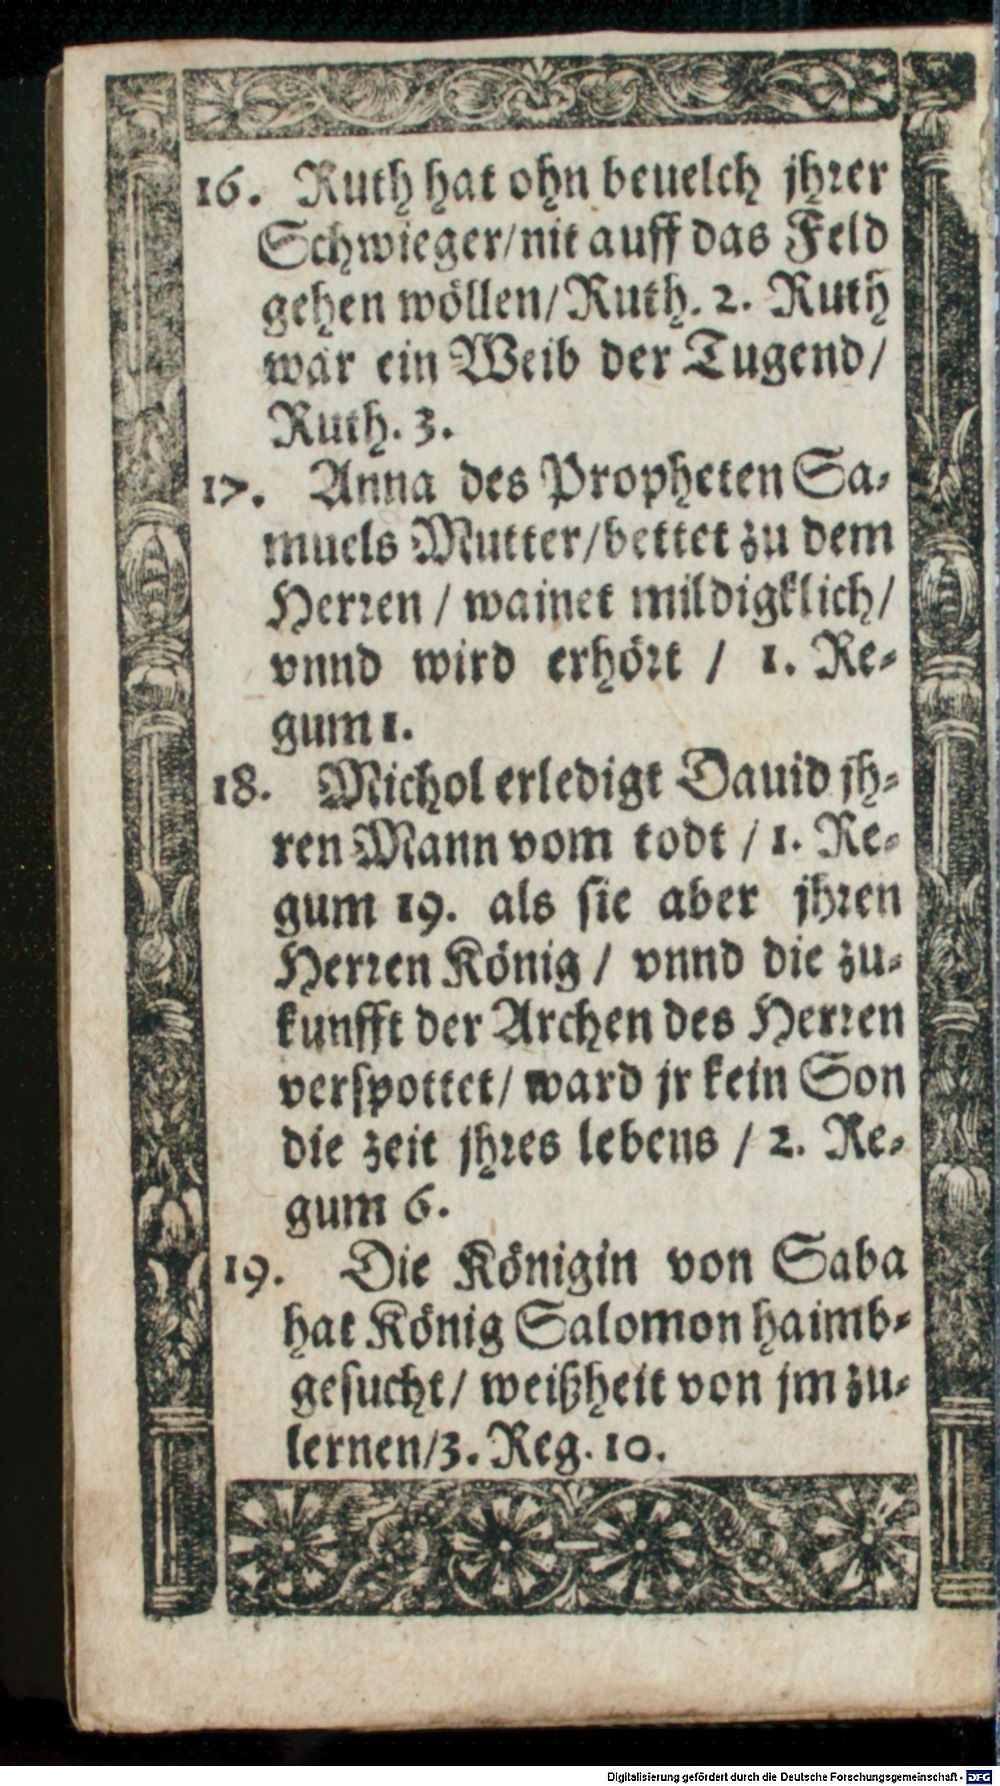 16. Ruth hat ohn beuelch jhrer
Schwieger/nit auff das Feld
gehen wöllen/Ruth. 2. Ruth
war ein Weib der Tugend/
Ruth. 3.
17. Anna des Propheten Sa-
muels Mutter/bettet zu dem
Herren / wainet mildigklich/
vnnd wird erhört / 1. Re-
gum 1.
18. Michol erledigt Dauid jh-
ren Mann vom todt / 1. Re-
gum 19. als sie aber jhren
Herren König / vnnd die zu-
kunfft der Archen des Herren
verspottet/ ward jr kein Son
die zeit jhres lebens / 2. Re-
gum 6.
19. Die Königin von Saba
hat König Salomon haimb-
gesucht/ weißheit von jm zu-
lernen/3. Reg. 10.
Digitalisierung gefördert durch die Deutsche Forschungsgemeinschaft - DFG